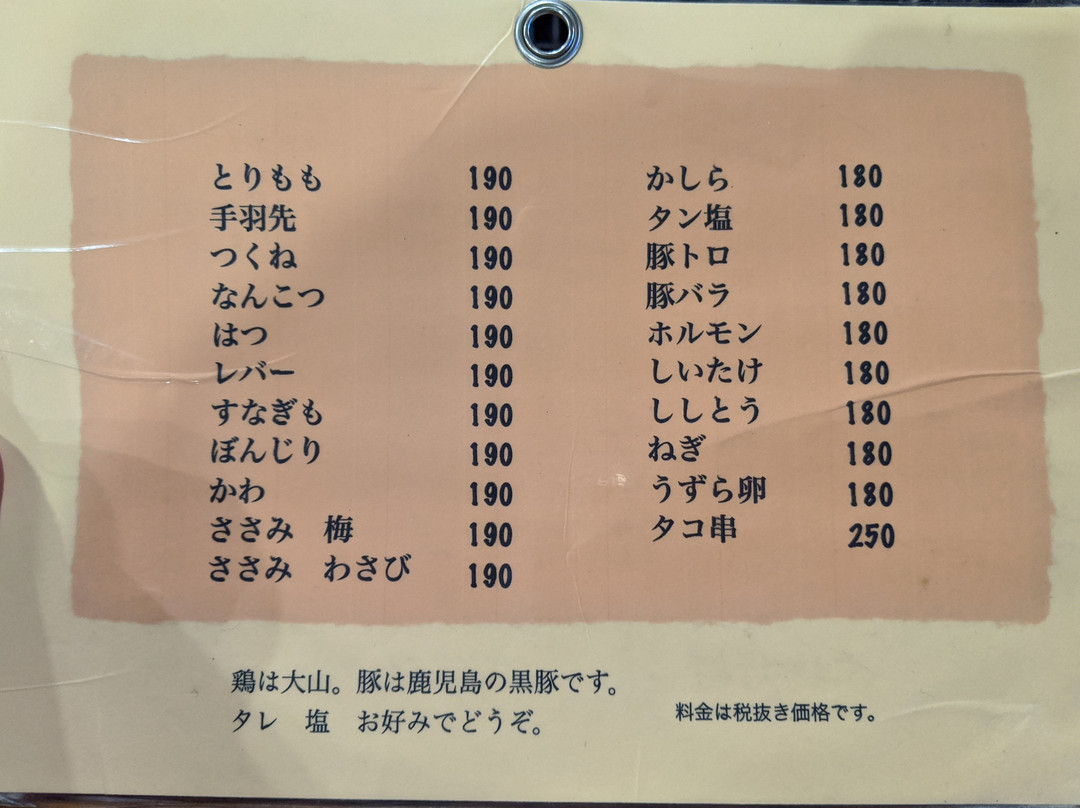 とりもも 190
手羽先 190
つくね 190
なんこつ 190
はつ 190
レバー 190
すなぎも 190
ぼんじり 190
かわ 190
ささみ　梅 190
ささみ　わさび 190
かしら 180
タン塩 180
豚トロ 180
豚バラ 180
ホルモン 180
しいたけ 180
ししとう 180
ねぎ 180
うずら卵 180
タコ串 250
鶏は大山。豚は鹿児島の黒豚です。
タレ　塩　お好みでどうぞ。
料金は税抜き価格です。